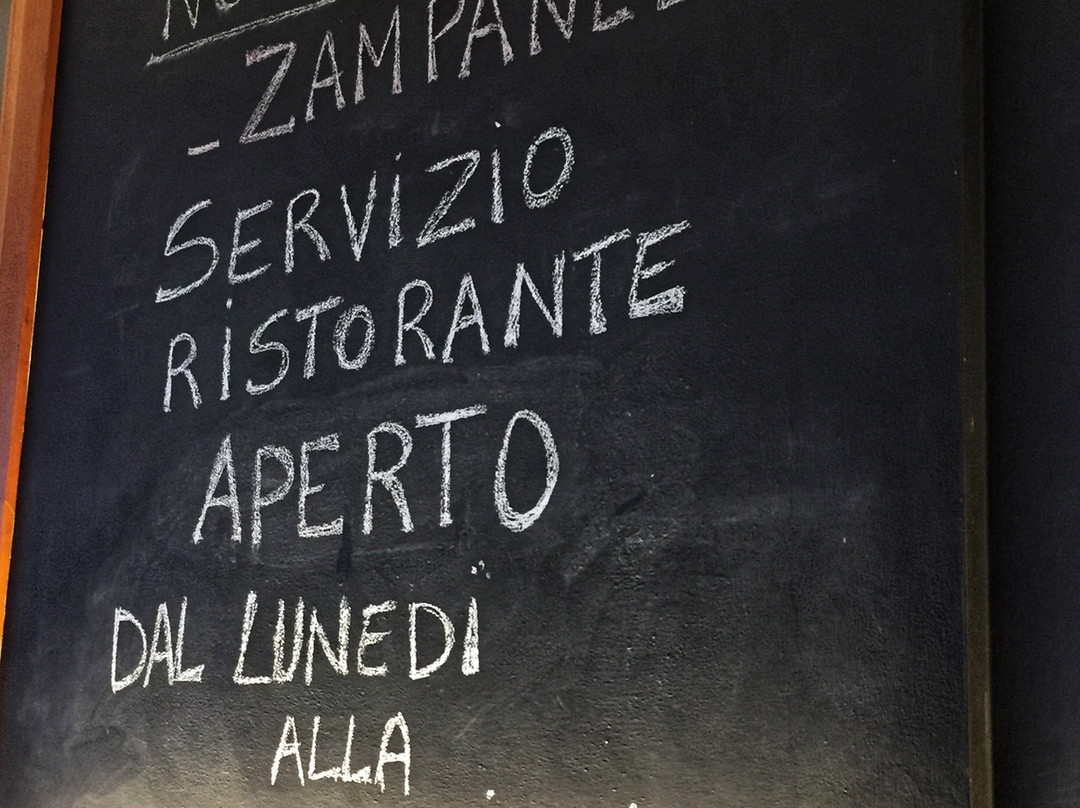 - ZAMPANE
SERVIZIO
RISTORANTE
APERTO
DAL LUNEDÌ
ALLA